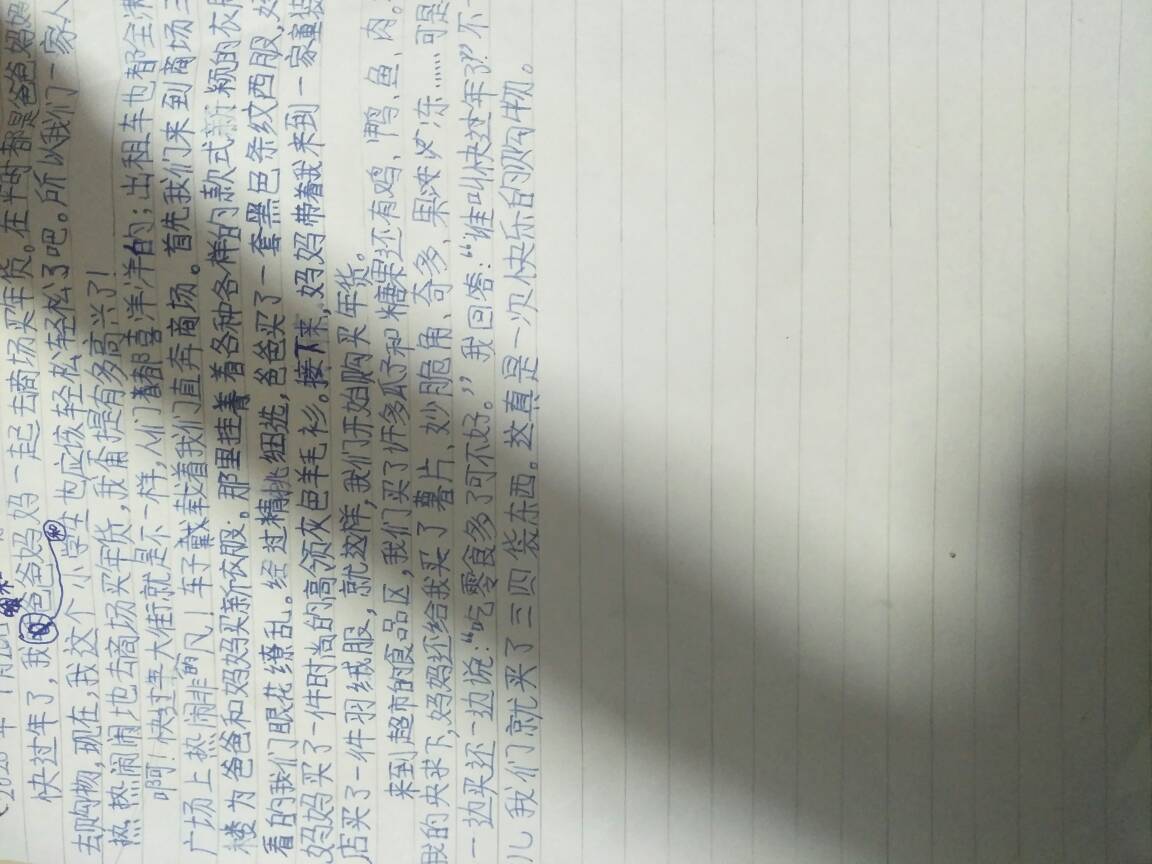 快过年了，我和爸爸妈妈一起去商场买年货。在平时都是爸爸妈妈
去购物，现在，我这个小学生也应该轻松轻松了吧。所以我们一家人
热热闹闹地去商场买年货，我甭提有多高兴了！
啊！快过年大街就是不一样，人们都喜洋洋的；出租车也都全满
广场上热闹非凡！车子载着我们直奔商场。首先我们来到商场三
楼为爸爸和妈妈买新衣服。那里挂着各种各样的款式新颖的衣服
看的我们眼花缭乱。经过精挑细选，爸爸买了一套黑色条纹西服，
妈妈买了一件时尚的高领灰色羊毛衫。接下来，妈妈带着我来到一家童装
店买了一件羽绒服，就这样，我们开始购买年货。
来到超市的食品区，我们买了许多瓜子和糖果还有鸡、鸭、鱼、肉。
我的央求下，妈妈还给我买了薯片、妙脆角、奇多、果冻……可是
一边买还一边说：“吃零食多了可不好。”我回答：“谁叫快过年了？”不一
儿我们就买了三四袋东西。这真是一次快乐的购物。